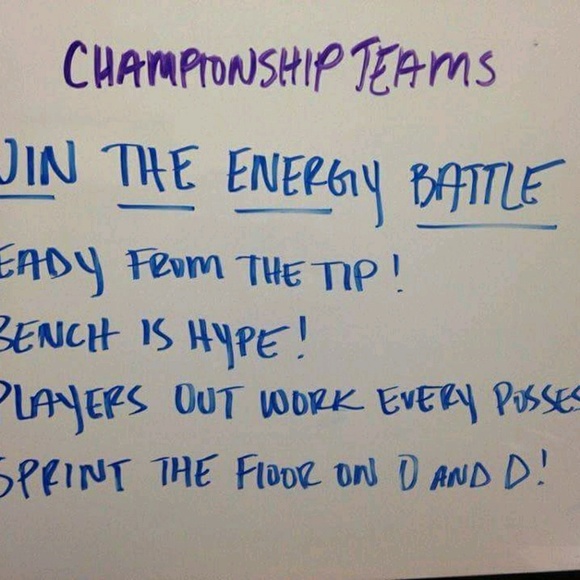 CHAMPIONSHIP TEAMS
WIN THE ENERGY BATTLE
EADY FROM THE TIP!
BENCH IS HYPE!
PLAYERS OUT WORK EVERY POSSES
SPRINT THE FLOOR ON O AND D!